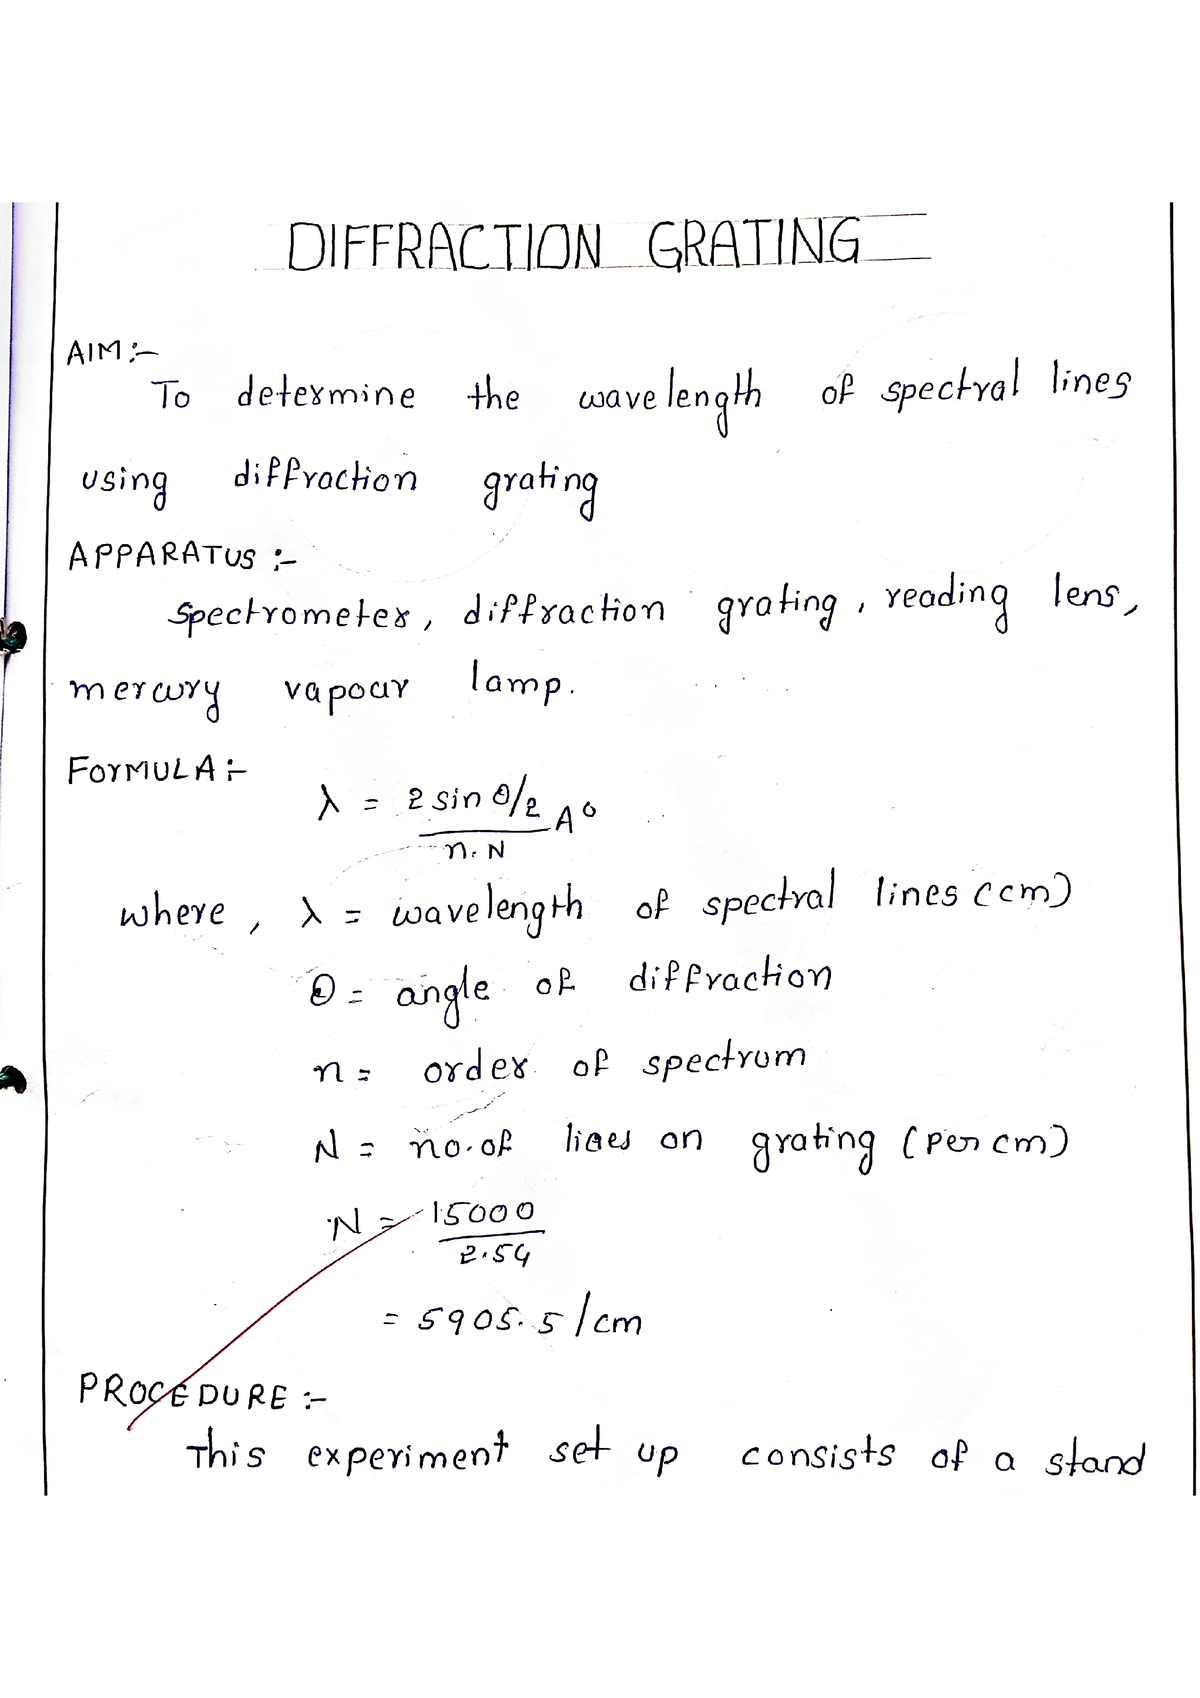 DIFFRACTION GRATING
AIM :-
To determine the wavelength of spectral lines
using diffraction grating
APPARATUS :-
Spectrometer, diffraction grating, reading lens,
mercury vapour lamp.
FORMULA :-
λ = 2 sin θ/2 A°
n. N
where, λ = wavelength of spectral lines (cm)
θ = angle of diffraction
n = order of spectrum
N = no. of lines on grating (per cm)
N = 15000
2.54
= 5905.5 /cm
PROCEDURE :-
This experiment set up consists of a stand